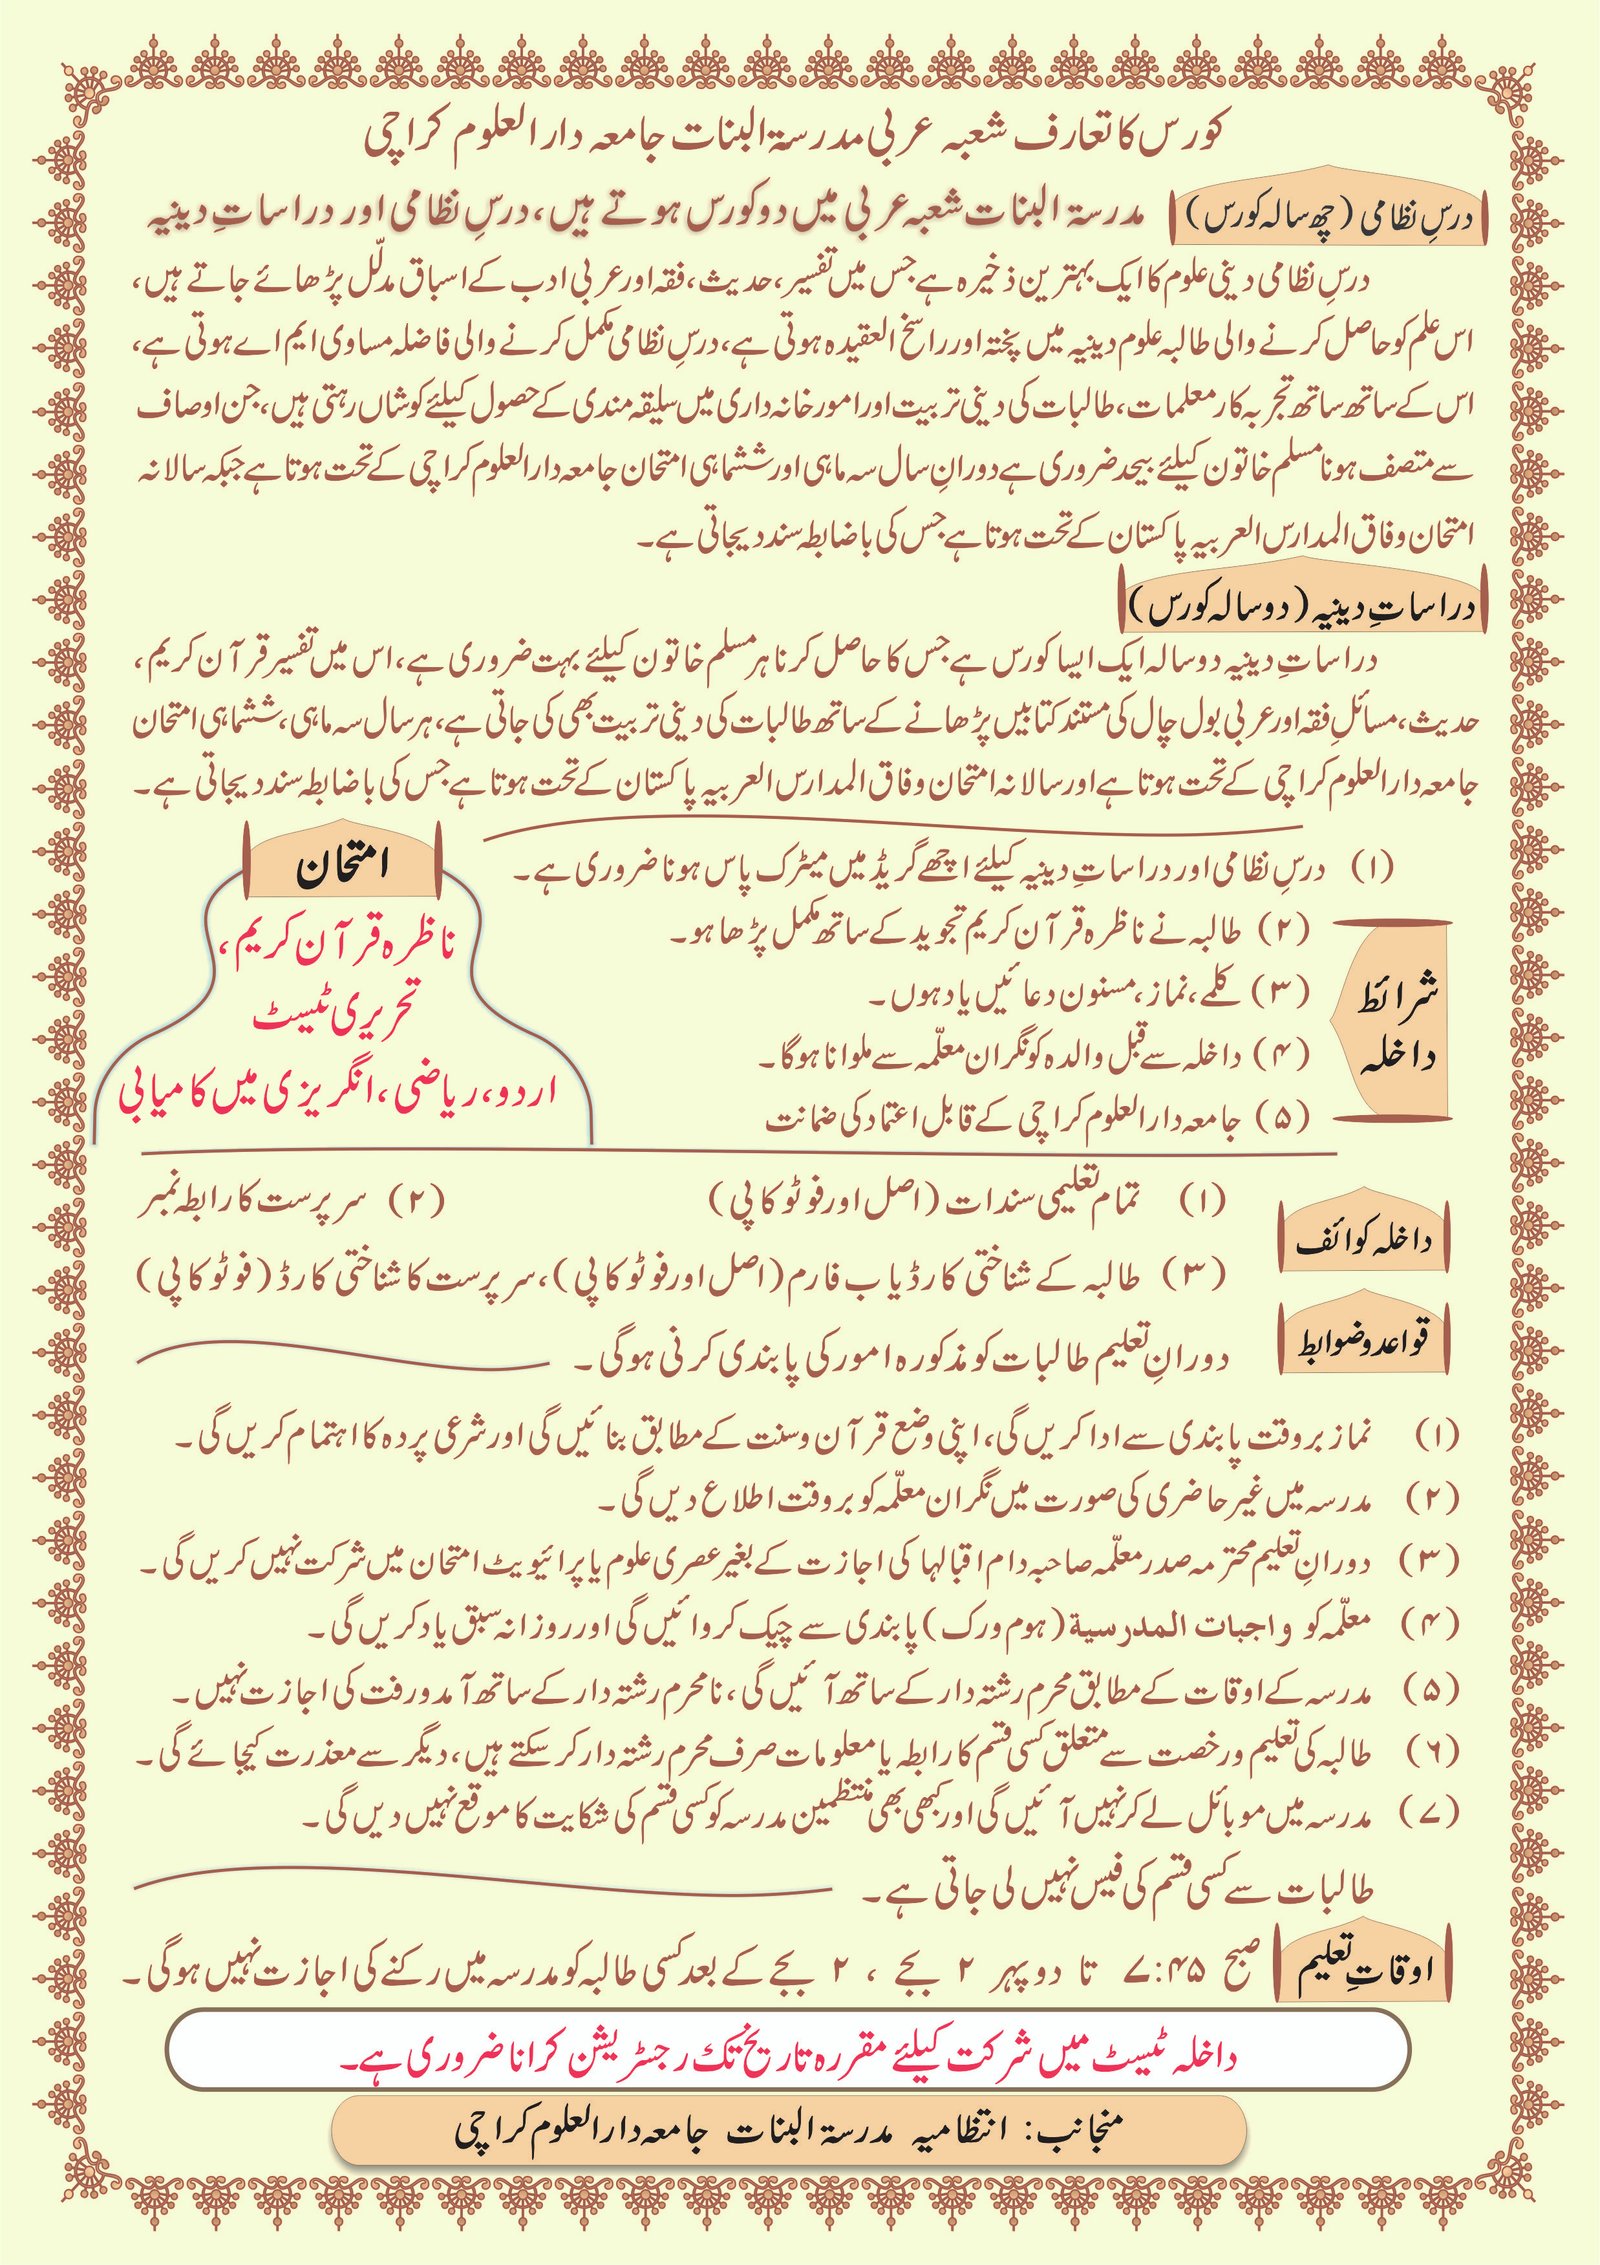 کورس کا تعارف شعبہ عربی مدرسۃ البنات جامعہ دارالعلوم کراچی
درسِ نظامی (چھ سالہ کورس) مدرسۃ البنات شعبہ عربی میں دو کورس ہوتے ہیں، درسِ نظامی اور دراساتِ دینیہ
درسِ نظامی دینی علوم کا ایک بہترین ذخیرہ ہے جس میں تفسیر، حدیث، فقہ اور عربی ادب کے اسباق مدلّل پڑھائے جاتے ہیں،
اس علم کو حاصل کرنے والی طالبہ علوم دینیہ میں پختہ اور راسخ العقیدہ ہوتی ہے، درسِ نظامی مکمل کرنے والی فاضلہ مساوی ایم اے ہوتی ہے،
اس کے ساتھ ساتھ تجربہ کار معلمات، طالبات کی دینی تربیت اور امور خانہ داری میں سلیقہ مندی کے حصول کیلئے کوشاں رہتی ہیں، جن اوصاف
سے متصف ہونا مسلم خاتون کیلئے بیحد ضروری ہے دورانِ سال سہ ماہی اور ششماہی امتحان جامعہ دارالعلوم کراچی کے تحت ہوتا ہے جبکہ سالانہ
امتحان وفاق المدارس العربیہ پاکستان کے تحت ہوتا ہے جس کی باضابطہ سند دیجاتی ہے۔
دراساتِ دینیہ (دو سالہ کورس)
دراساتِ دینیہ دو سالہ ایک ایسا کورس ہے جس کا حاصل کرنا ہر مسلم خاتون کیلئے بہت ضروری ہے، اس میں تفسیر قرآن کریم،
حدیث، مسائلِ فقہ اور عربی بول چال کی مستند کتابیں پڑھانے کے ساتھ طالبات کی دینی تربیت بھی کی جاتی ہے، ہر سال سہ ماہی، ششماہی امتحان
جامعہ دارالعلوم کراچی کے تحت ہوتا ہے اور سالانہ امتحان وفاق المدارس العربیہ پاکستان کے تحت ہوتا ہے جس کی باضابطہ سند دیجاتی ہے۔
شرائط
داخلہ
(۱) درسِ نظامی اور دراساتِ دینیہ کیلئے اچھے گریڈ میں میٹرک پاس ہونا ضروری ہے۔
(۲) طالبہ نے ناظرہ قرآن کریم تجوید کے ساتھ مکمل پڑھا ہو۔
(۳) کلمے، نماز، مسنون دعائیں یاد ہوں۔
(۴) داخلہ سے قبل والدہ کو نگران معلّمہ سے ملوانا ہوگا۔
(۵) جامعہ دارالعلوم کراچی کے قابل اعتماد کی ضمانت
امتحان
ناظرہ قرآن کریم،
تحریری ٹیسٹ
اردو، ریاضی، انگریزی میں کامیابی
داخلہ کوائف
(۱) تمام تعلیمی سندات (اصل اور فوٹو کاپی) (۲) سرپرست کا رابطہ نمبر
(۳) طالبہ کے شناختی کارڈ یا ب فارم (اصل اور فوٹو کاپی)، سرپرست کا شناختی کارڈ (فوٹو کاپی)
قواعد وضوابط
دورانِ تعلیم طالبات کو مذکورہ امور کی پابندی کرنی ہوگی۔
(۱) نماز بروقت پابندی سے ادا کریں گی، اپنی وضع قرآن وسنت کے مطابق بنائیں گی اور شرعی پردہ کا اہتمام کریں گی۔
(۲) مدرسہ میں غیر حاضری کی صورت میں نگران معلّمہ کو بروقت اطلاع دیں گی۔
(۳) دورانِ تعلیم محترمہ صدر معلّمہ صاحبہ دام اقبالہا کی اجازت کے بغیر عصری علوم یا پرائیویٹ امتحان میں شرکت نہیں کریں گی۔
(۴) معلّمہ کو واجبات المدرسية (ہوم ورک) پابندی سے چیک کروائیں گی اور روزانہ سبق یاد کریں گی۔
(۵) مدرسہ کے اوقات کے مطابق محرم رشتہ دار کے ساتھ آئیں گی، نامحرم رشتہ دار کے ساتھ آمد ورفت کی اجازت نہیں۔
(۶) طالبہ کی تعلیم ورخصت سے متعلق کسی قسم کا رابطہ یا معلومات صرف محرم رشتہ دار کرسکتے ہیں، دیگر سے معذرت کیجائے گی۔
(۷) مدرسہ میں موبائل لے کر نہیں آئیں گی اور کبھی بھی منتظمین مدرسہ کو کسی قسم کی شکایت کا موقع نہیں دیں گی۔
طالبات سے کسی قسم کی فیس نہیں لی جاتی ہے۔
اوقاتِ تعلیم صبح ۷:۴۵ تا دوپہر ۲ بجے ، ۲ بجے کے بعد کسی طالبہ کو مدرسہ میں رکنے کی اجازت نہیں ہوگی۔
داخلہ ٹیسٹ میں شرکت کیلئے مقررہ تاریخ تک رجسٹریشن کرانا ضروری ہے۔
منجانب: انتظامیہ مدرسۃ البنات جامعہ دارالعلوم کراچی